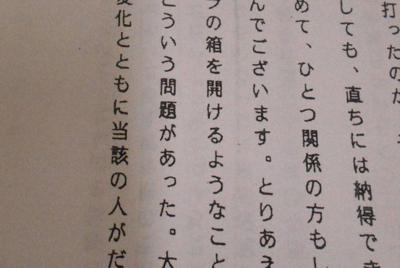 打ったのか
しても、直ちには納得でき
めて、ひとつ関係の方もし
んでございます。とりあえ
の箱を開けるようなこと
こういう問題があった。大
変化とともに当該の人がだ